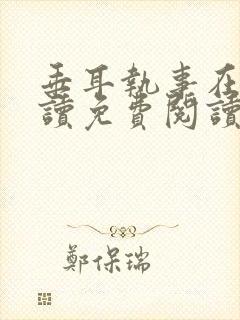 垂耳執事在
讀免費閱讀
鄭保瑞